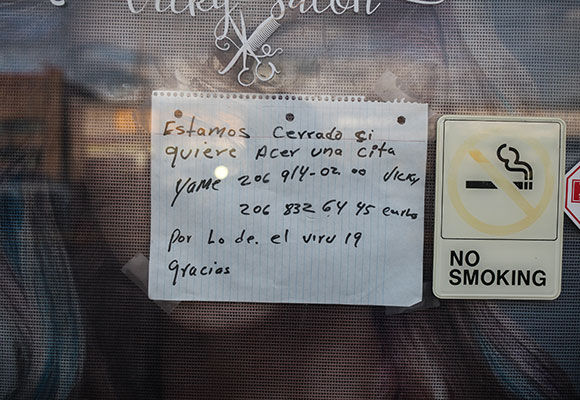 Vicky Salon
Estamos Cerrado si
quiere Acer una cita
Yame 206 914-02 00 Vicky
206 832 64 45
por Lo de. el viru 19
Gracias
NO
SMOKING